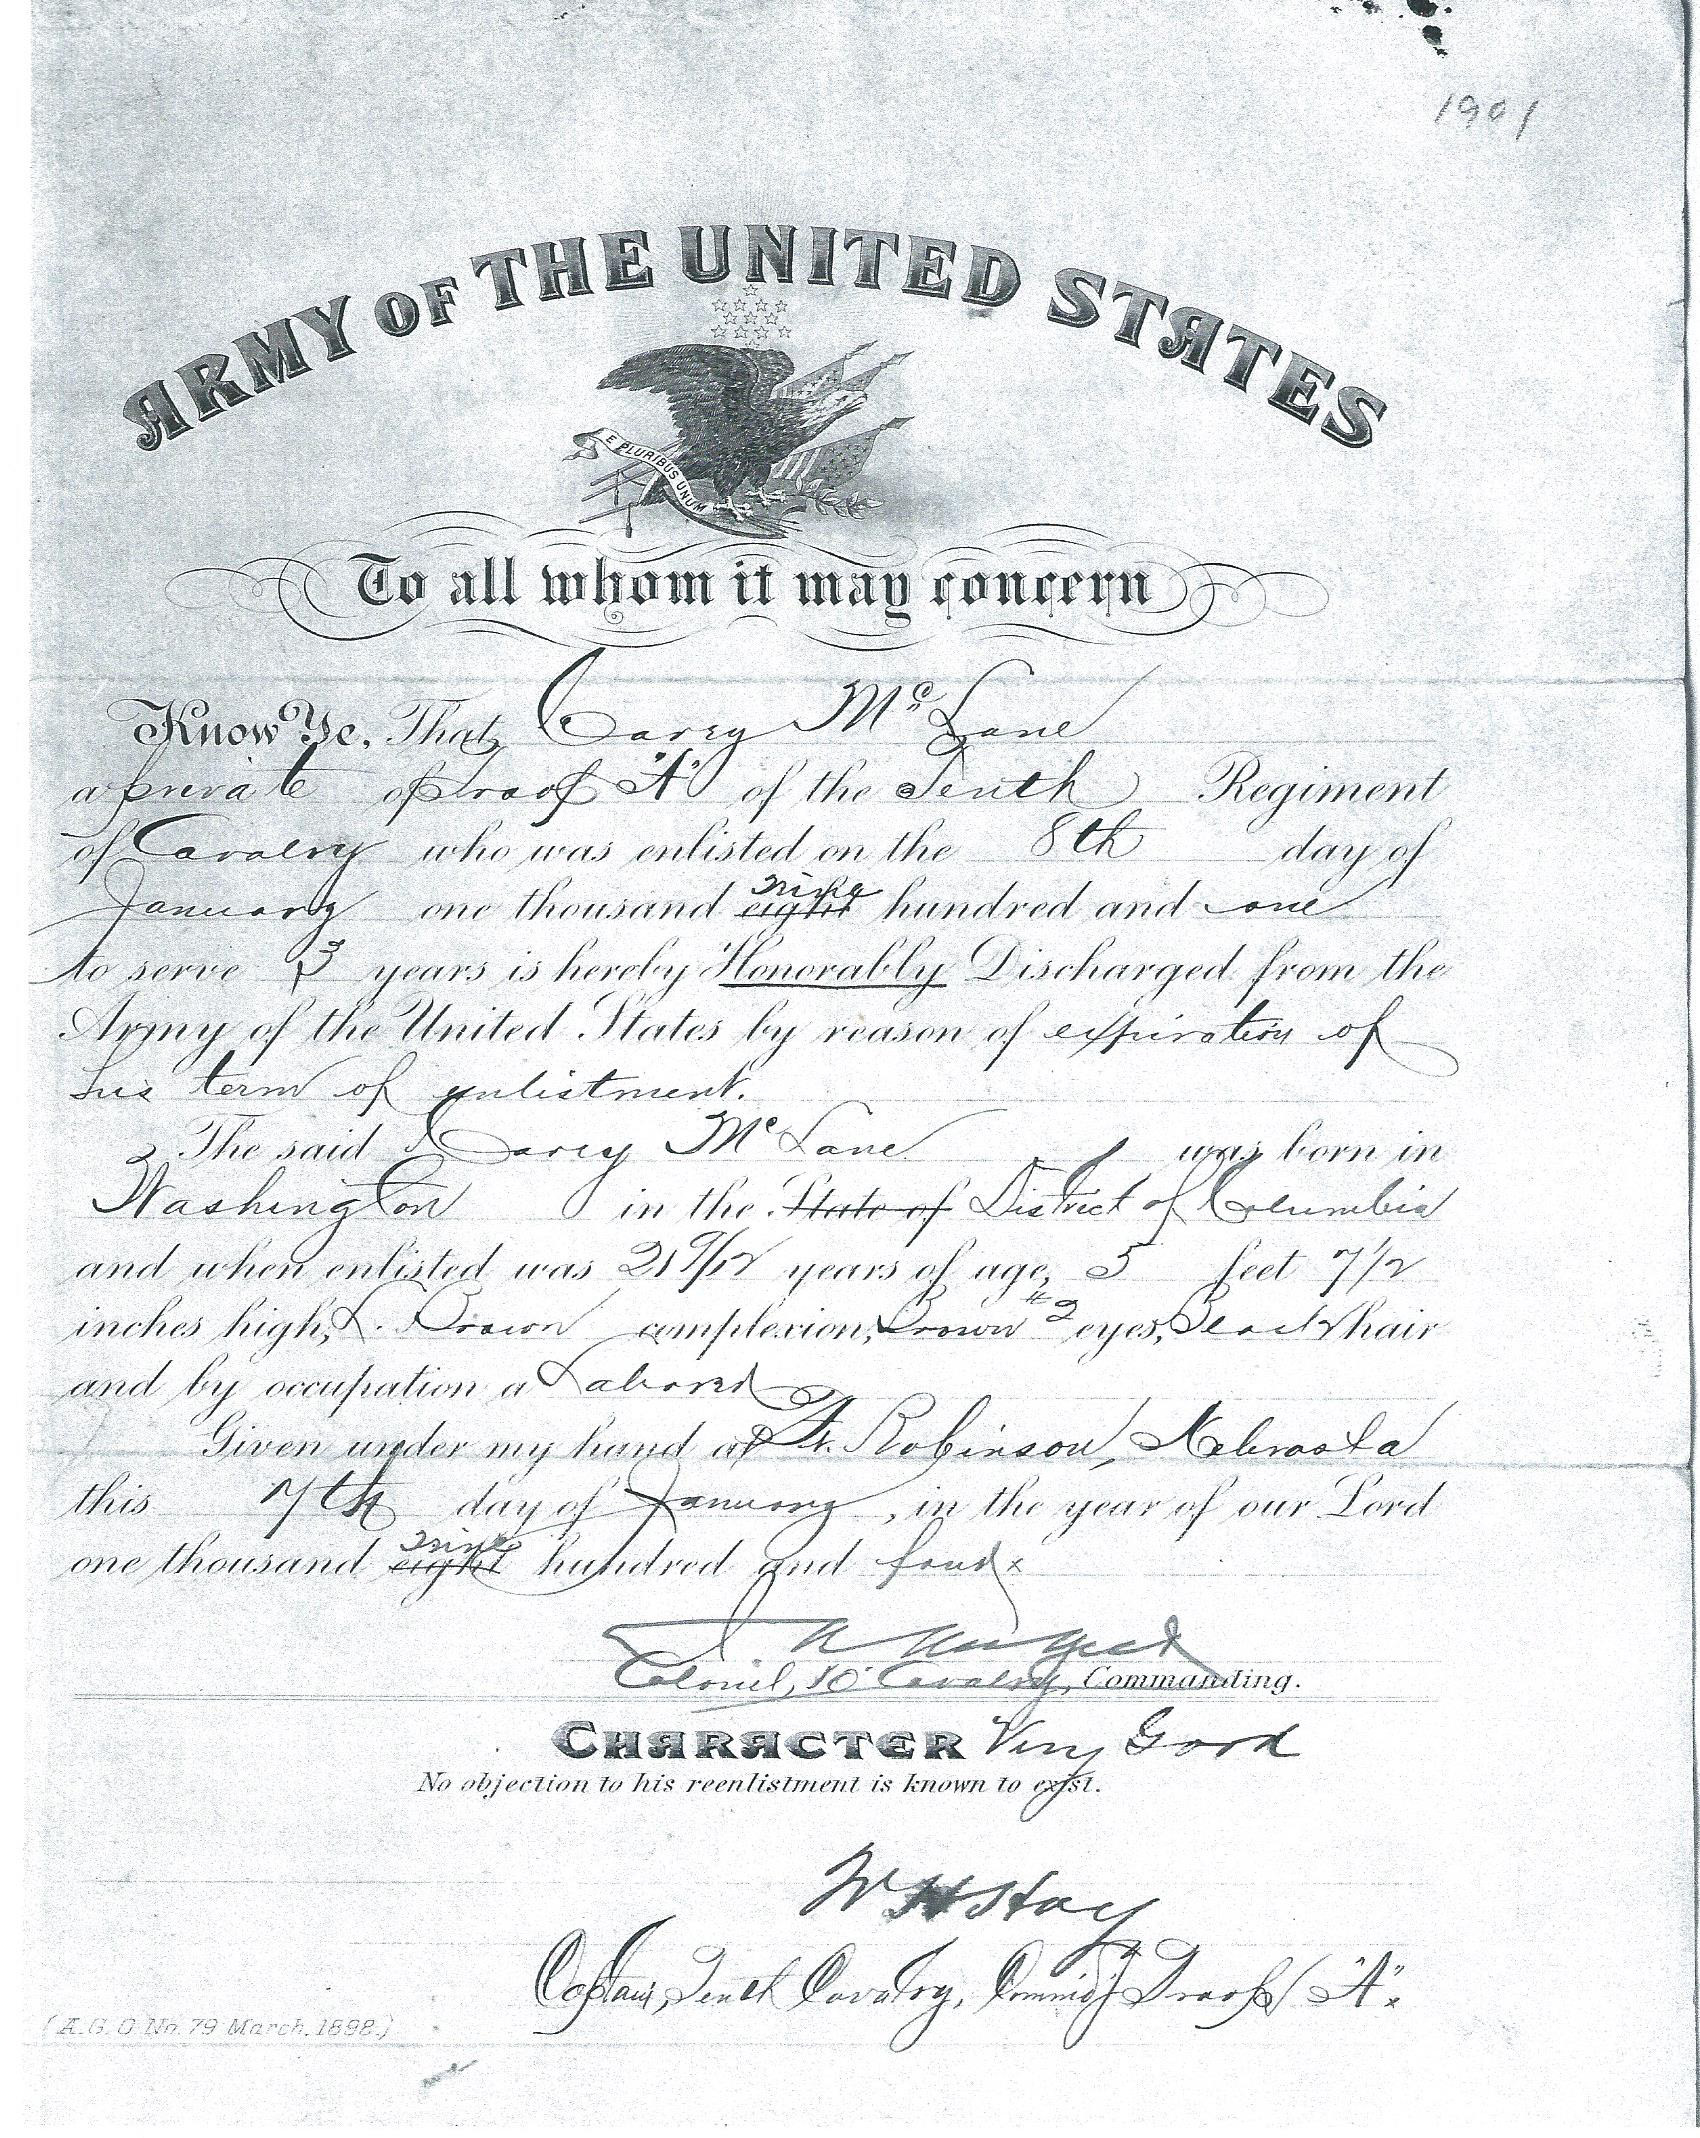 1901
ARMY OF THE UNITED STATES
E PLURIBUS UNUM
To all whom it may concern
Know Ye, That Carey McLane
a private of Troop "A" of the Tenth Regiment
of Cavalry who was enlisted on the 8th day of
January one thousand eight nine hundred and one
to serve 3 years is hereby Honorably Discharged from the
Army of the United States by reason of expiration of
his term of enlistment.
The said Carey McLane was born in
Washington in the State of District of Columbia
and when enlisted was 21 9/12 years of age, 5 feet 7 1/2
inches high, L. Brown complexion, Brown #2 eyes, Black hair
and by occupation a Laborer
Given under my hand at Ft. Robinson, Nebraska
this 7th day of January, in the year of our Lord
one thousand eight nine hundred and four
Colonel, 10" Cavalry, Commanding.
CHARACTER Very Good
No objection to his reenlistment is known to exist.
W H Hay
Captain, Tenth Cavalry, Commd'g Troop "A".
(A.G.O No. 79 March. 1898.)